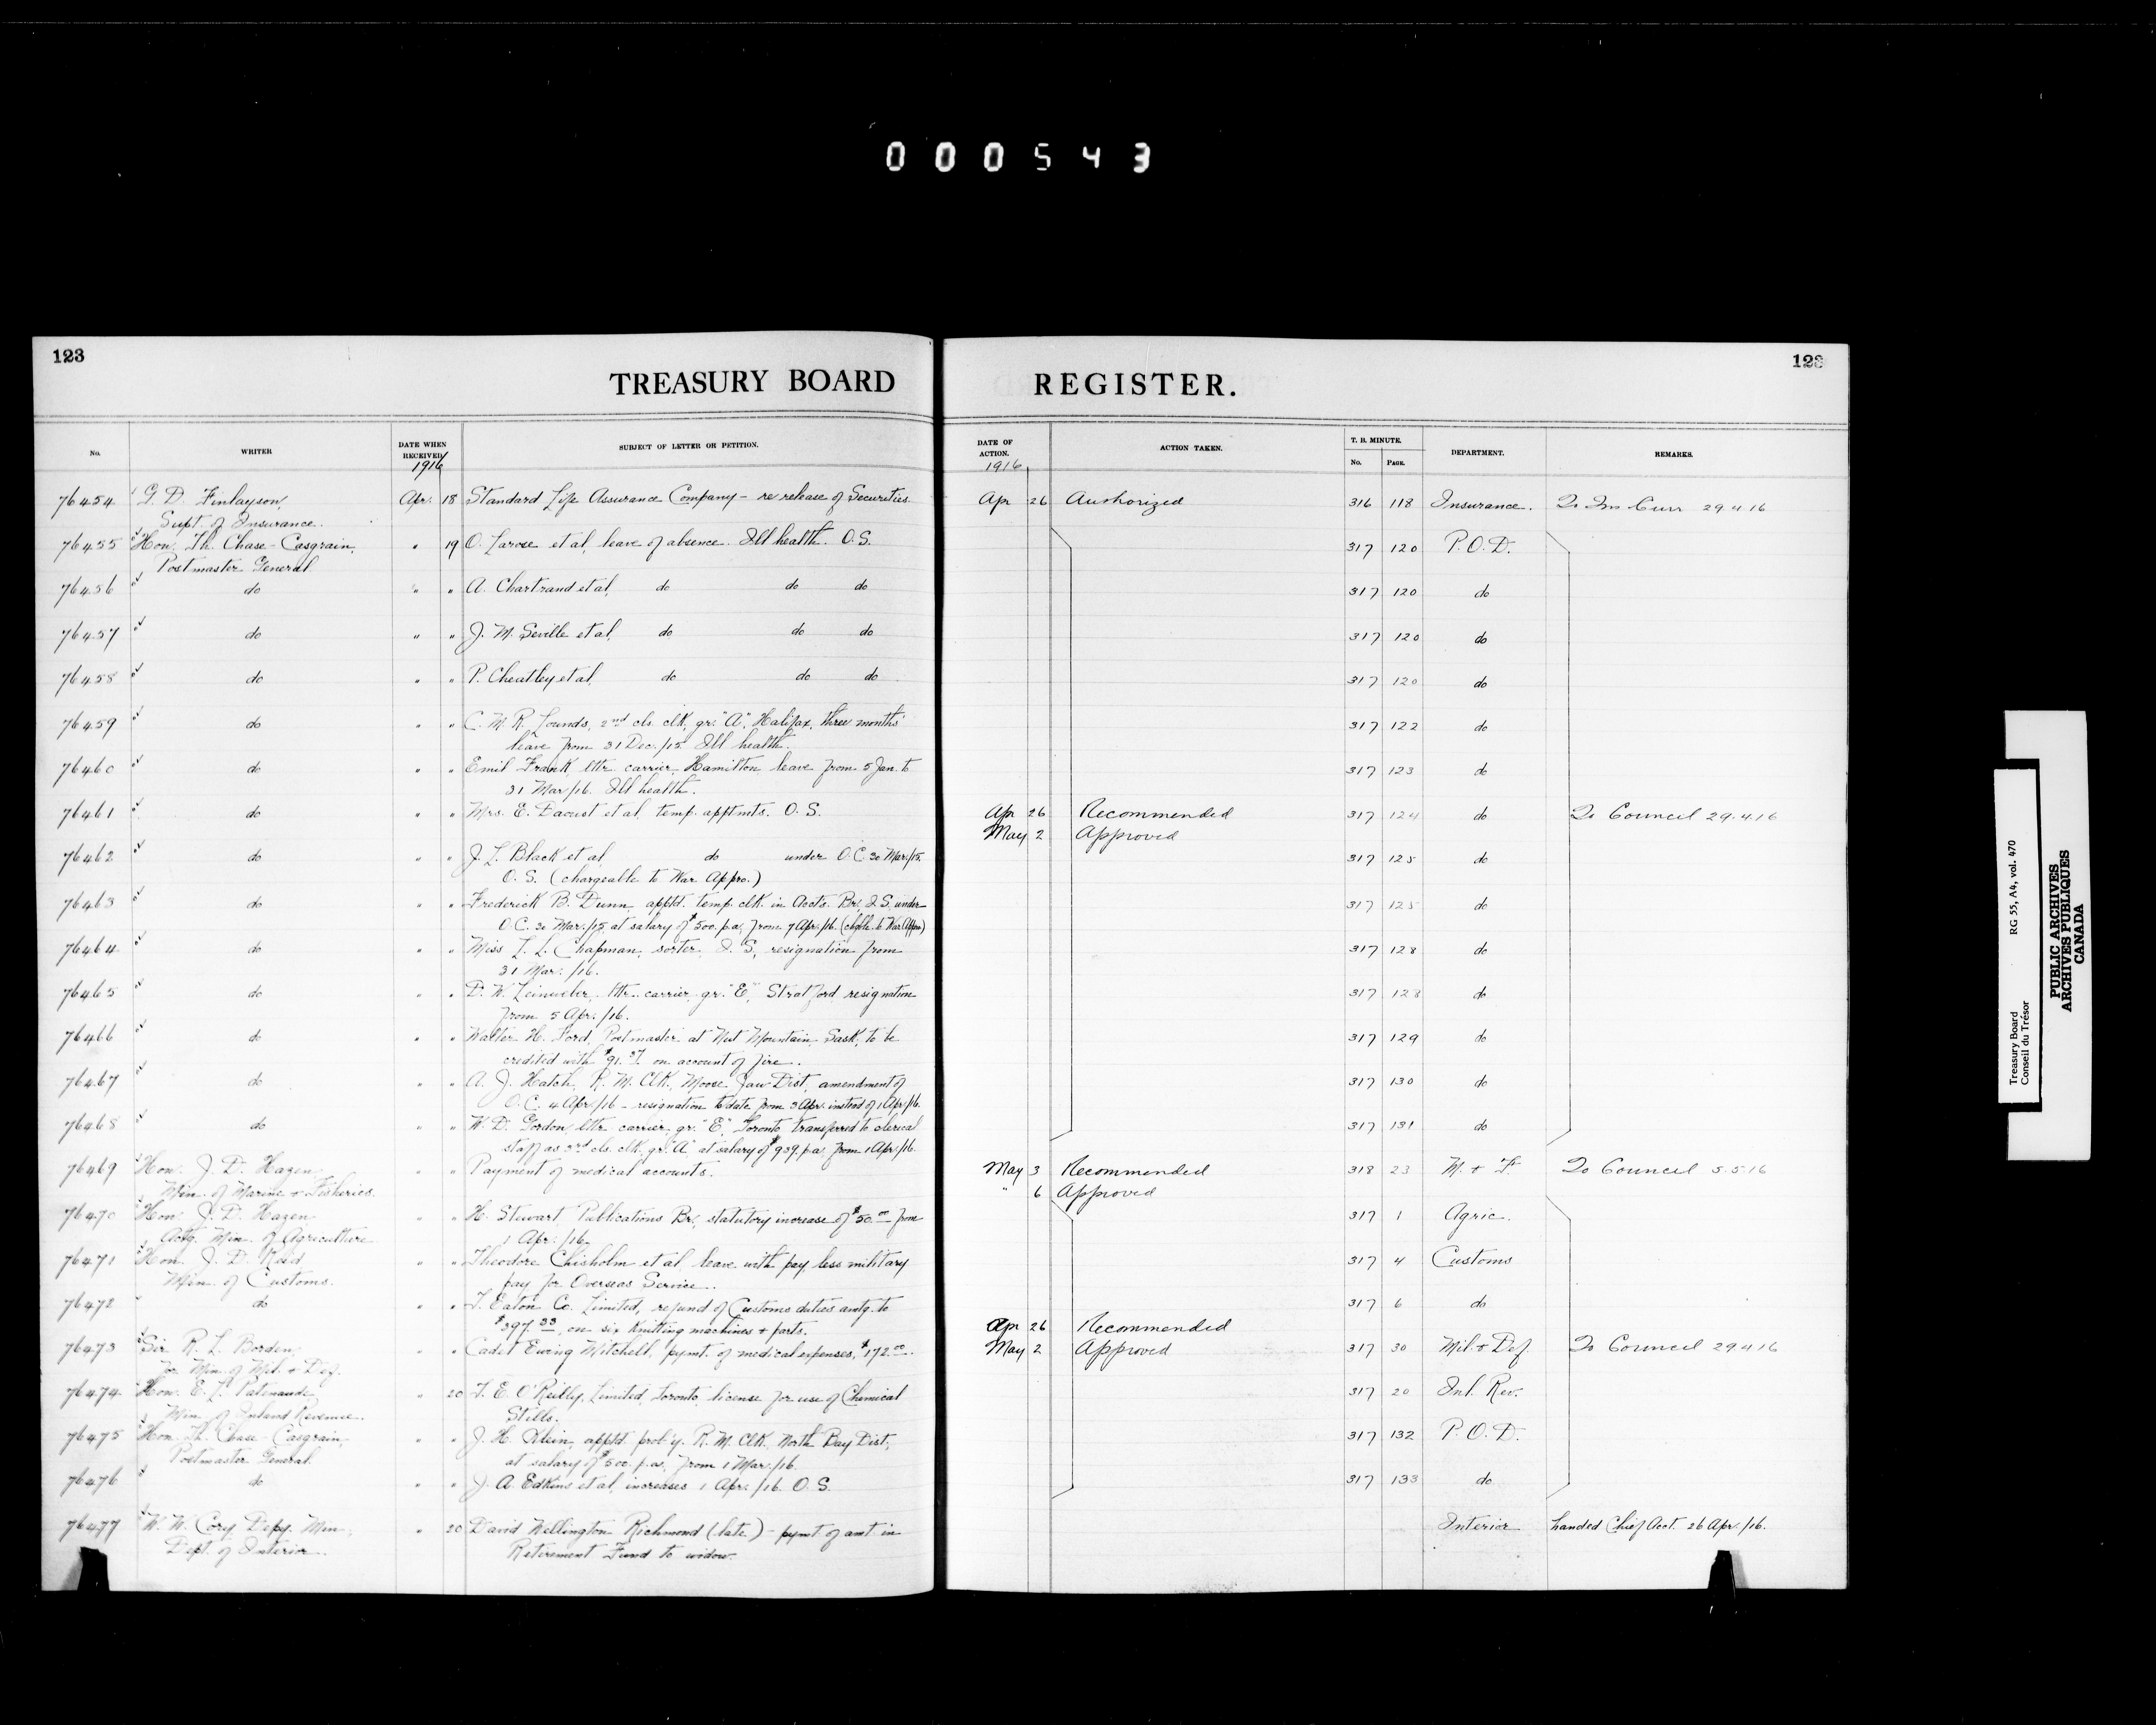 000543
123
TREASURY BOARD
No.
WRITER
DATE WHEN RECEIVED
SUBJECT OF LETTER OR PETITION.
1916
76454 G. D. Finlayson, Apr. 18 Standard Life Assurance Company - re release of Securities
Supt. of Insurance.
76455 Hon. Th. Chase-Casgrain, " 19 O. Larose et al, leave of absence. Ill health. O.S.
Postmaster General
76456 do " " A. Chartrand et al, do do do
76457 do " " J. M. Seville et al, do do do
76458 do " " P. Cheatley et al, do do do
76459 do " " C. M. R. Lounds, 2nd cls. clk, gr. "A", Halifax, three months'
leave from 31 Dec./15. Ill health.
76460 do " " Emil Frank, lttr. carrier, Hamilton leave from 5 Jan. to
31 Mar/16. Ill health.
76461 do " " Mrs. E. Daoust et al, temp. apptmts. O.S.
76462 do " " J. L. Black et al, do under O.C. 30 Mar./15.
O.S. (chargeable to War Appro.)
76463 do " " Frederick B. Dunn, apptd. temp. clk. in Accts. Br. I.S. under
O.C. 30 Mar./15, at salary of $500. p.a, from 7 Apr./16. (chgble. to War Appro)
76464 do " " Miss L. L. Chapman, sorter, I.S, resignation from
31 Mar. /16.
76465 do " " D. W. Leinweber, lttr. carrier, gr. "E", Stratford resignation
from 5 Apr. /16.
76466 do " " Walter H. Ford, Postmaster at Nut Mountain, Sask, to be
credited with $91.37 on account of fire.
76467 do " " A. J. Hatch, R. M. Clk, Moose Jaw Dist, amendment of
O.C. 4 Apr./16 - resignation to date from 3 Apr. instead of 1 Apr./16.
76468 do " " W. D. Gordon, lttr. carrier, gr. "E", Toronto, transferred to clerical
staff as 3rd cls. clk, gr. "A" at salary of $939. p.a. from 1 Apr./16.
76469 Hon. J. D. Hazen " " Payment of medical accounts.
Min. of Marine & Fisheries.
76470 Hon. J. D. Hazen " " H. Stewart Publications Br, statutory increase of $50.00 from
Actg. Min. of Agriculture 1 Apr. /16.
76471 Hon. J. D. Reid " " Theodore Chisholm et al leave with pay, less military
Min. of Customs. pay for Overseas Service.
76472 do " " T. Eaton Co. Limited, refund of Customs duties amtg. to
$397.33, on six knitting machines & parts.
76473 Sir R. L. Borden, " " Cadet Ewing Mitchell, pymt. of medical expenses, $172.00.
for Min. of Mil. & Def.
76474 Hon. E. L. Patenaude, " 20 T. E. O'Reilly, Limited, Toronto, license for use of Chemical
Min. of Inland Revenue. Stills.
76475 Hon. Th. Chase-Casgrain, " " J. H. Klein, apptd. prob'y. R. M. Clk, North Bay Dist,
Postmaster General at salary of $500. p.a. from 1 Mar./16.
76476 do " " J. A. Edkins et al, increases 1 Apr. /16. O.S.
76477 W. W. Cory, Depy. Min, " 20 David Wellington Richmond (late) - pymt. of amt. in
Dept. of Interior. Retirement Fund to widow.
123
REGISTER.
DATE OF ACTION.
ACTION TAKEN.
T. B. MINUTE.
No.
PAGE.
DEPARTMENT.
REMARKS.
1916
Apr 26 Authorized 316 118 Insurance. 29 4 16
317 120 P.O.D.
317 120 do
317 120 do
317 120 do
317 122 do
317 123 do
Apr 26 Recommended 317 124 do To Council 29.4.16
May 2 Approved
317 125 do
317 125 do
317 128 do
317 128 do
317 129 do
317 130 do
317 131 do
May 3 Recommended 318 23 M. & F. To Council 5.5.16
" 6 Approved
317 1 Agric.
317 4 Customs
317 6 do
Apr 26 Recommended
May 2 Approved 317 30 Mil. & Def. To Council 29 4 16
317 20 Inl. Rev.
317 132 P.O.D.
317 133 do
Interior handed Chief Acct. 26 Apr./16.
Treasury Board RG 55, A4, vol. 470
Conseil du Trésor
PUBLIC ARCHIVES
ARCHIVES PUBLIQUES
CANADA